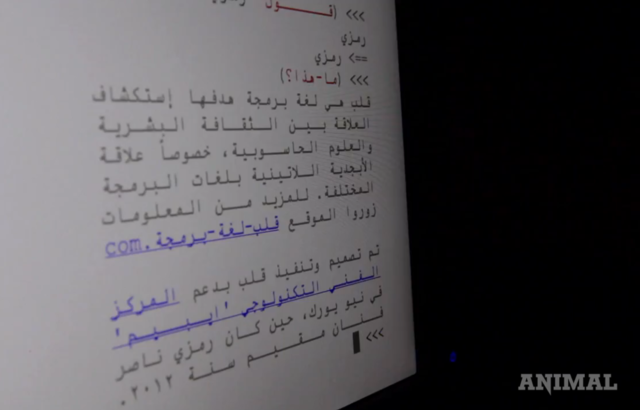 >>> (قـــول رمزي
رمزي
==> رمزي
>>> (ما-هذا؟)
قلب هي لغة برمجة هدفها إستكشاف
العلاقة بين الثقافة البشرية
والعلوم الحاسوبية، خصوصاً علاقة
الأبجدية اللاتينية بلغات البرمجة
المختلفة. للمزيد من المعلومات
زوروا الموقع قلب-لغة-برمجة.com
تم تصميم وتنفيذ قلب بدعم المركز
الفني التكنولوجي 'ايبيم'
في نيو يورك، حين كان رمزي ناصر
فلان مقيم سنة ٢٠١٢.
>>>
ANIMAL